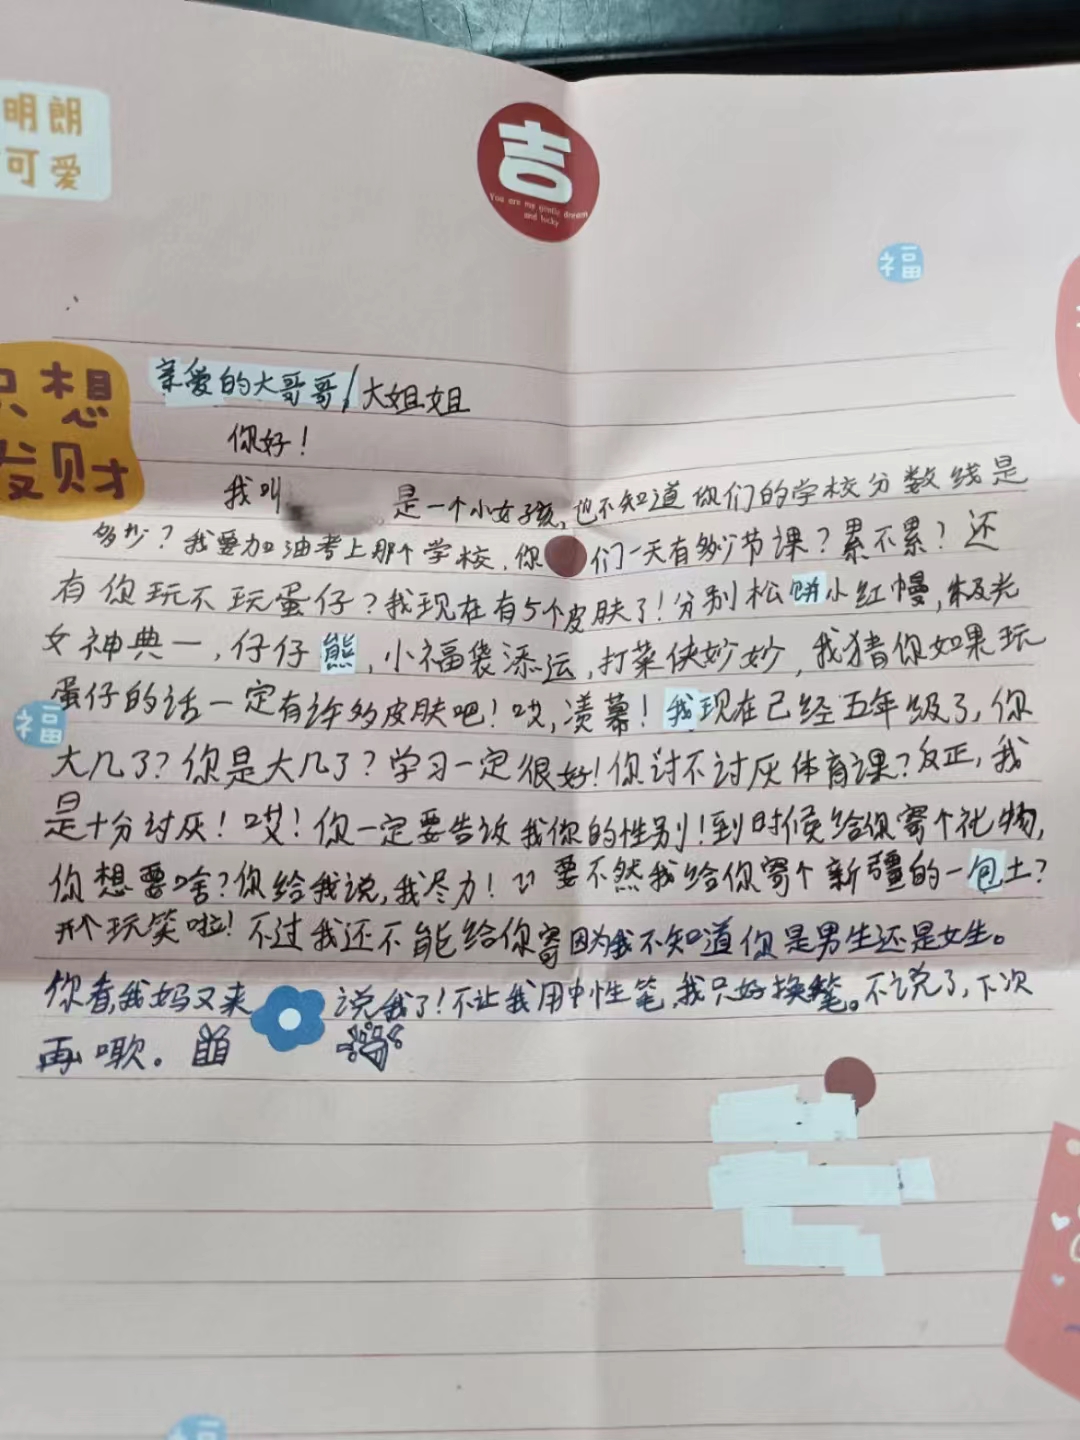 明朗
可爱
吉
You are me gentle dream
and lucky
福
只想
发财
亲爱的大哥哥/大姐姐
你好！
我叫 是一个小女孩,也不知道你们的学校分数线是
多少？我要加油考上那个学校,你们一天有多少节课？累不累？还
有你玩不玩蛋仔？我现在有5个皮肤了！分别松饼小红帽,极光
女神典一,仔仔熊,小福袋添运,打菜侠妙妙,我猜你如果玩
蛋仔的话一定有许多皮肤吧！哎,羡慕！我现在已经五年级了,你
福
大几了？你是大几了？学习一定很好！你讨不讨厌体育课？反正,我
是十分讨厌！哎！你一定要告诉我你的性别！到时候给你寄个礼物,
你想要啥？你给我说,我尽力！要不然我给你寄个新疆的一包土？
开个玩笑啦！不过我还不能给你寄因为我不知道你是男生还是女生。
你看,我妈又来说我了！不让我用中性笔,我只好换笔。不说了,下次
再嗽。
福